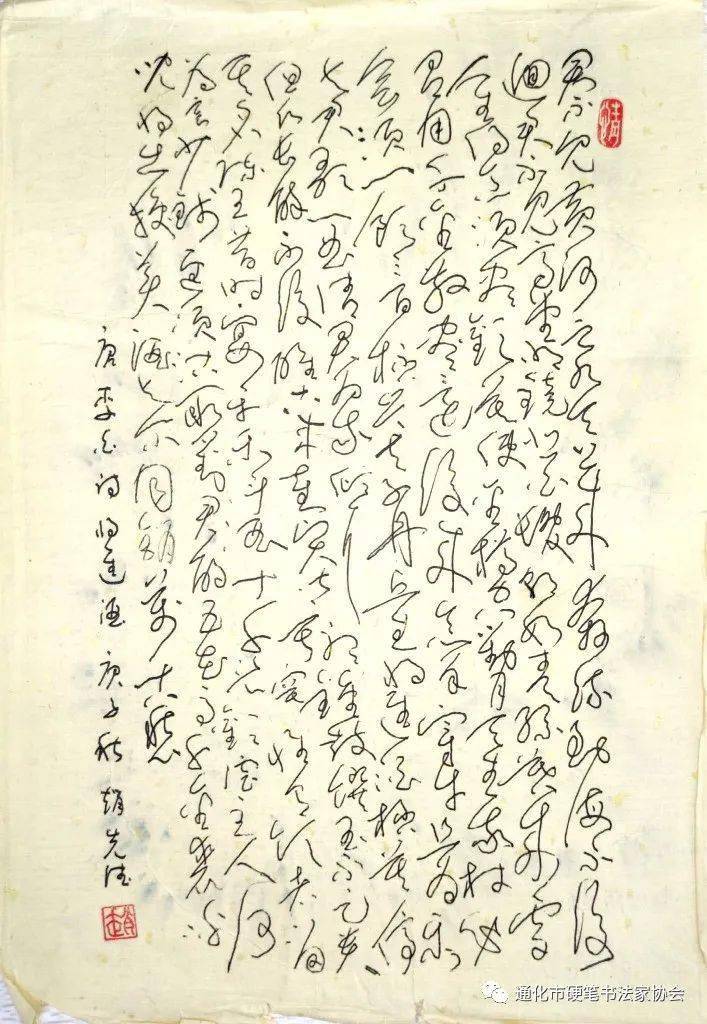 君不见黄河之水天上来奔流到海不復
迴君不见高堂明镜悲白髮朝如青絲暮成雪
人生得意须尽歡莫使金樽空對月天生我材必
有用千金散尽还復来烹羊宰牛且为乐
会须一饮三百杯岑夫子丹丘生将进酒杯莫停
与君歌一曲请君为我倾耳听钟鼓馔玉不足贵
但願长醉不復醒古来圣贤皆寂寞惟有饮者留
其名陈王昔时宴平乐斗酒十千恣歡谑主人何
为言少钱径须沽取对君酌五花马千金裘
呼儿将出换美酒与尔同销万古愁
唐李白诗将进酒 庚子秋 赵先德
通化市硬笔书法家协会